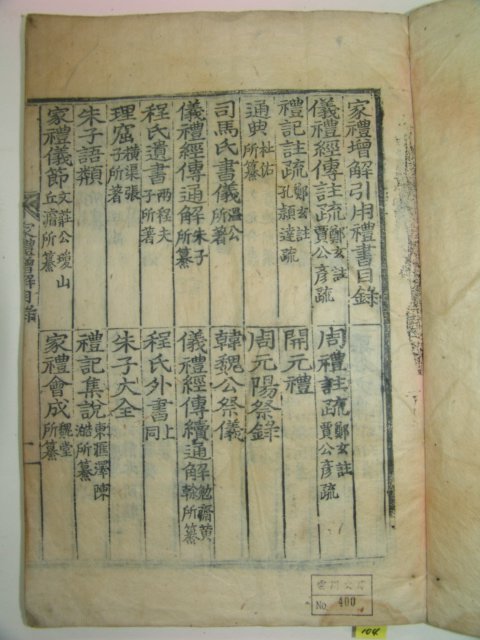 家禮增解引用禮書目錄
儀禮經傳註疏 鄭玄註 賈公彥疏
周禮註疏 鄭玄註 賈公彥疏
禮記註疏 鄭玄註 孔穎達疏
開元禮
通典 杜佑所纂
周元陽祭錄
司馬氏書儀 溫公所著
韓魏公祭儀
儀禮經傳通解 朱子所纂
儀禮經傳續通解 勉齋黃榦所纂
程氏遺書 兩程夫子所著
程氏外書 上同
理窟 橫渠張子所著
朱子大全
朱子語類
禮記集說 東匯澤陳澔所纂
家禮儀節 文莊公瓊山丘濬所纂
家禮會成 魏堂所纂
家禮增解目錄
一
No. 400
104